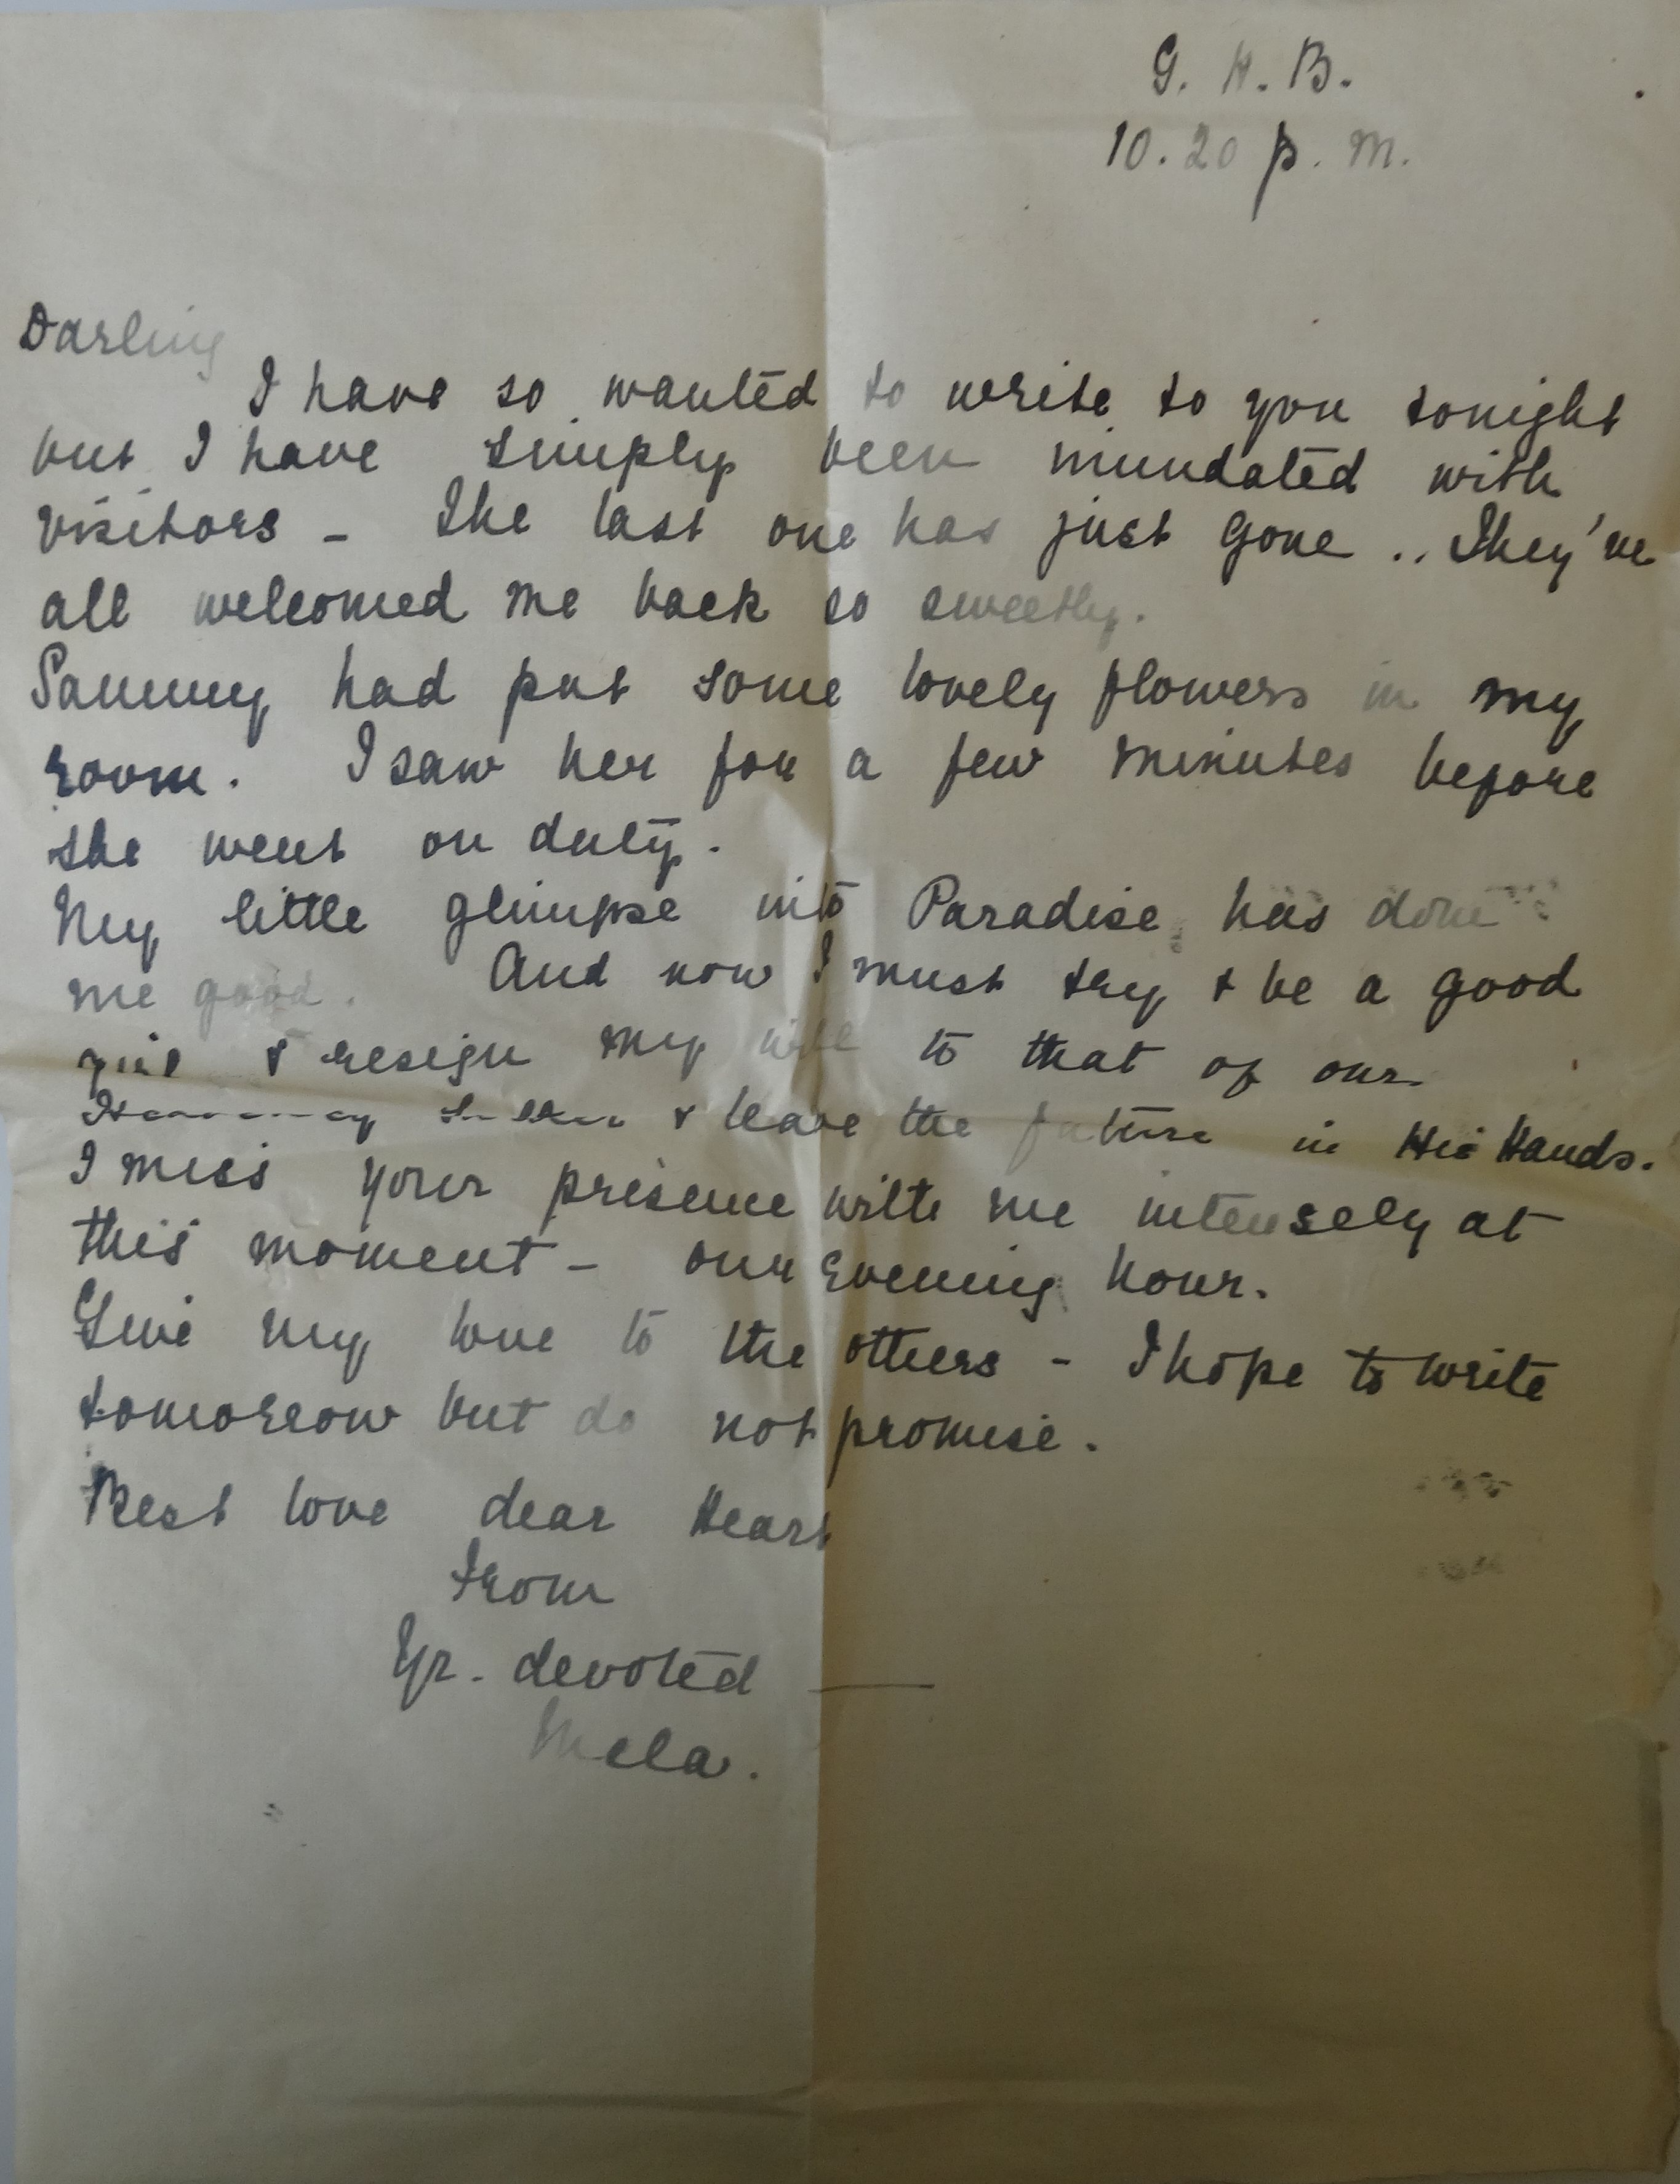 G. H. B.
10.20 p. m.
Darling
I have so wanted to write to you tonight
but I have simply been inundated with
visitors - The last one has just gone .. They've
all welcomed me back so sweetly.
Sammy had put some lovely flowers in my
room. I saw her for a few minutes before
she went on duty.
My little glimpse into Paradise has done
me good. And now I must try & be a good
girl & resign my will to that of our
Heavenly Father & leave the future in His Hands.
I miss your presence with me intensely at
this moment - our Evening hour.
Give my love to the others - I hope to write
tomorrow but do not promise.
Best love dear Heart
From
Yr. devoted
Mela.